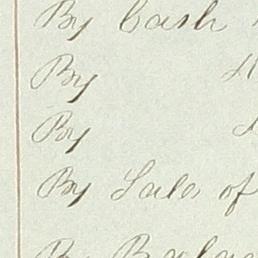 By Cash
By
By
By Sales of
By